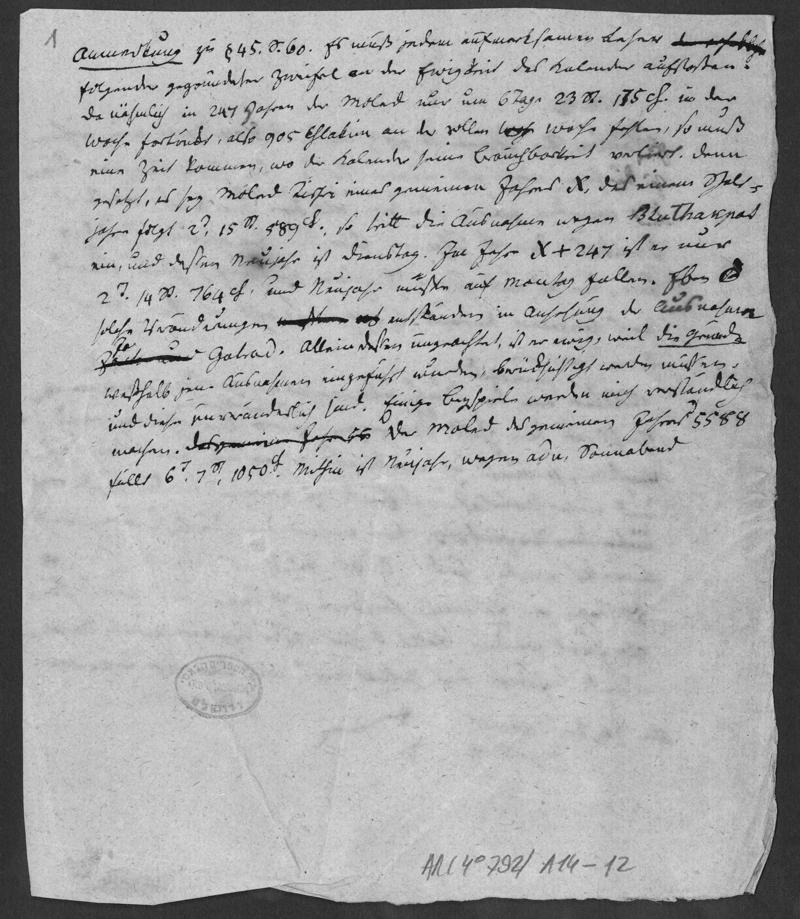 1
Anmerkung zu § 45. S. 60. Es muß jedem aufmerksamen Leser
folgender gegründeter Zweifel an der Ewigkeit des Kalender aufstoßen.
da nähmlich in 247 Jahren der Moled nur um 6 Tage 23 St. 175 ch. in der
Woche fortrückt, also 905 Chlakim an der vollen Woche fehlen, so muß
eine Zeit kommen, wo der Kalender seine Brauchbarkeit verliert. denn
gesetzt, es sey Moled Tischri eines gemeinen Jahres X, das einem Schalt-
jahre folgt 2 T. 15 St. 589 ch., so tritt die Ausnahme wegen Bluthakpat
ein, und dessen Neujahr ist Dienstag. Im Jahre X + 247 ist er nur
2 T. 14 St. 764 ch. und Neujahr müßte auf Montag fallen. Eben
solche Veränderungen entständen in Ansehung der Ausnahme
Gatrad. Allein dessen ungeachtet, ist er ewig, weil die Gründe
weßhalb jene Ausnahmen eingeführt wurden, berücksichtigt werden müssen,
und diese unveränderlich sind. Einige Beyspiele werden mich verständlich
machen. Der Moled des gemeinen Jahres 5588
fällt 6 T. 7 St. 1050 ch. Mithin ist Neujahr, wegen adu, Sonnabend
ARC 4° 792/ A14-12